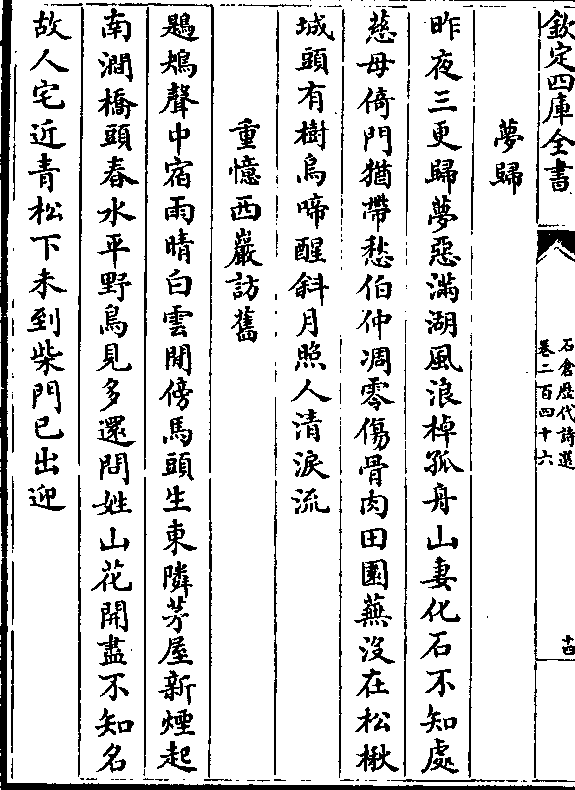 欽定四庫全書
石倉歷代詩選
卷二百四十六
十四
夢歸
昨夜三更歸夢惡滿湖風浪棹孤舟山妻化石不知處
慈母倚門猶帶愁伯仲凋零傷骨肉田園蕪沒在松楸
城頭有樹烏啼醒斜月照人清淚流
重憶西巖訪舊
鶗鴂聲中宿雨晴白雲閒傍馬頭生東隣茅屋新煙起
南澗橋頭春水平野鳥見多還問姓山花開盡不知名
故人宅近青松下未到柴門已出迎